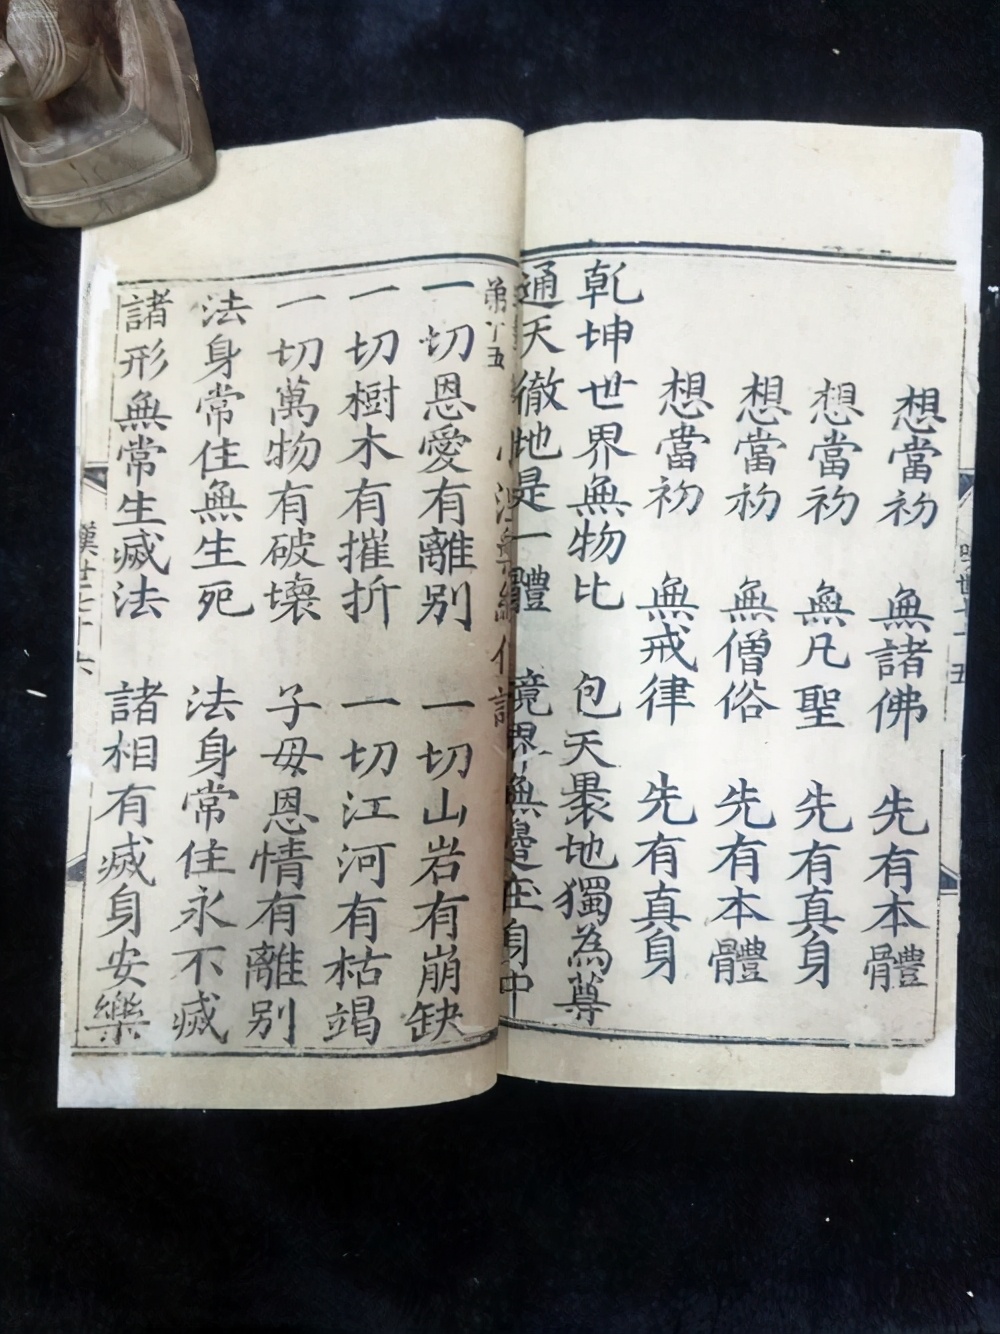 想當初 無諸佛 先有本體
想當初 無凡聖 先有真身
想當初 無僧俗 先有本體
想當初 無戒律 先有真身
乾坤世界無物比 包天裹地獨為尊
通天徹地是一體 境界無邊在身中
一切恩愛有離別 一切山岩有崩缺
一切樹木有摧折 一切江河有枯竭
一切萬物有破壞 子母恩情有離別
法身常住無生死 法身常住永不滅
諸形無常生滅法 諸相有滅身安樂